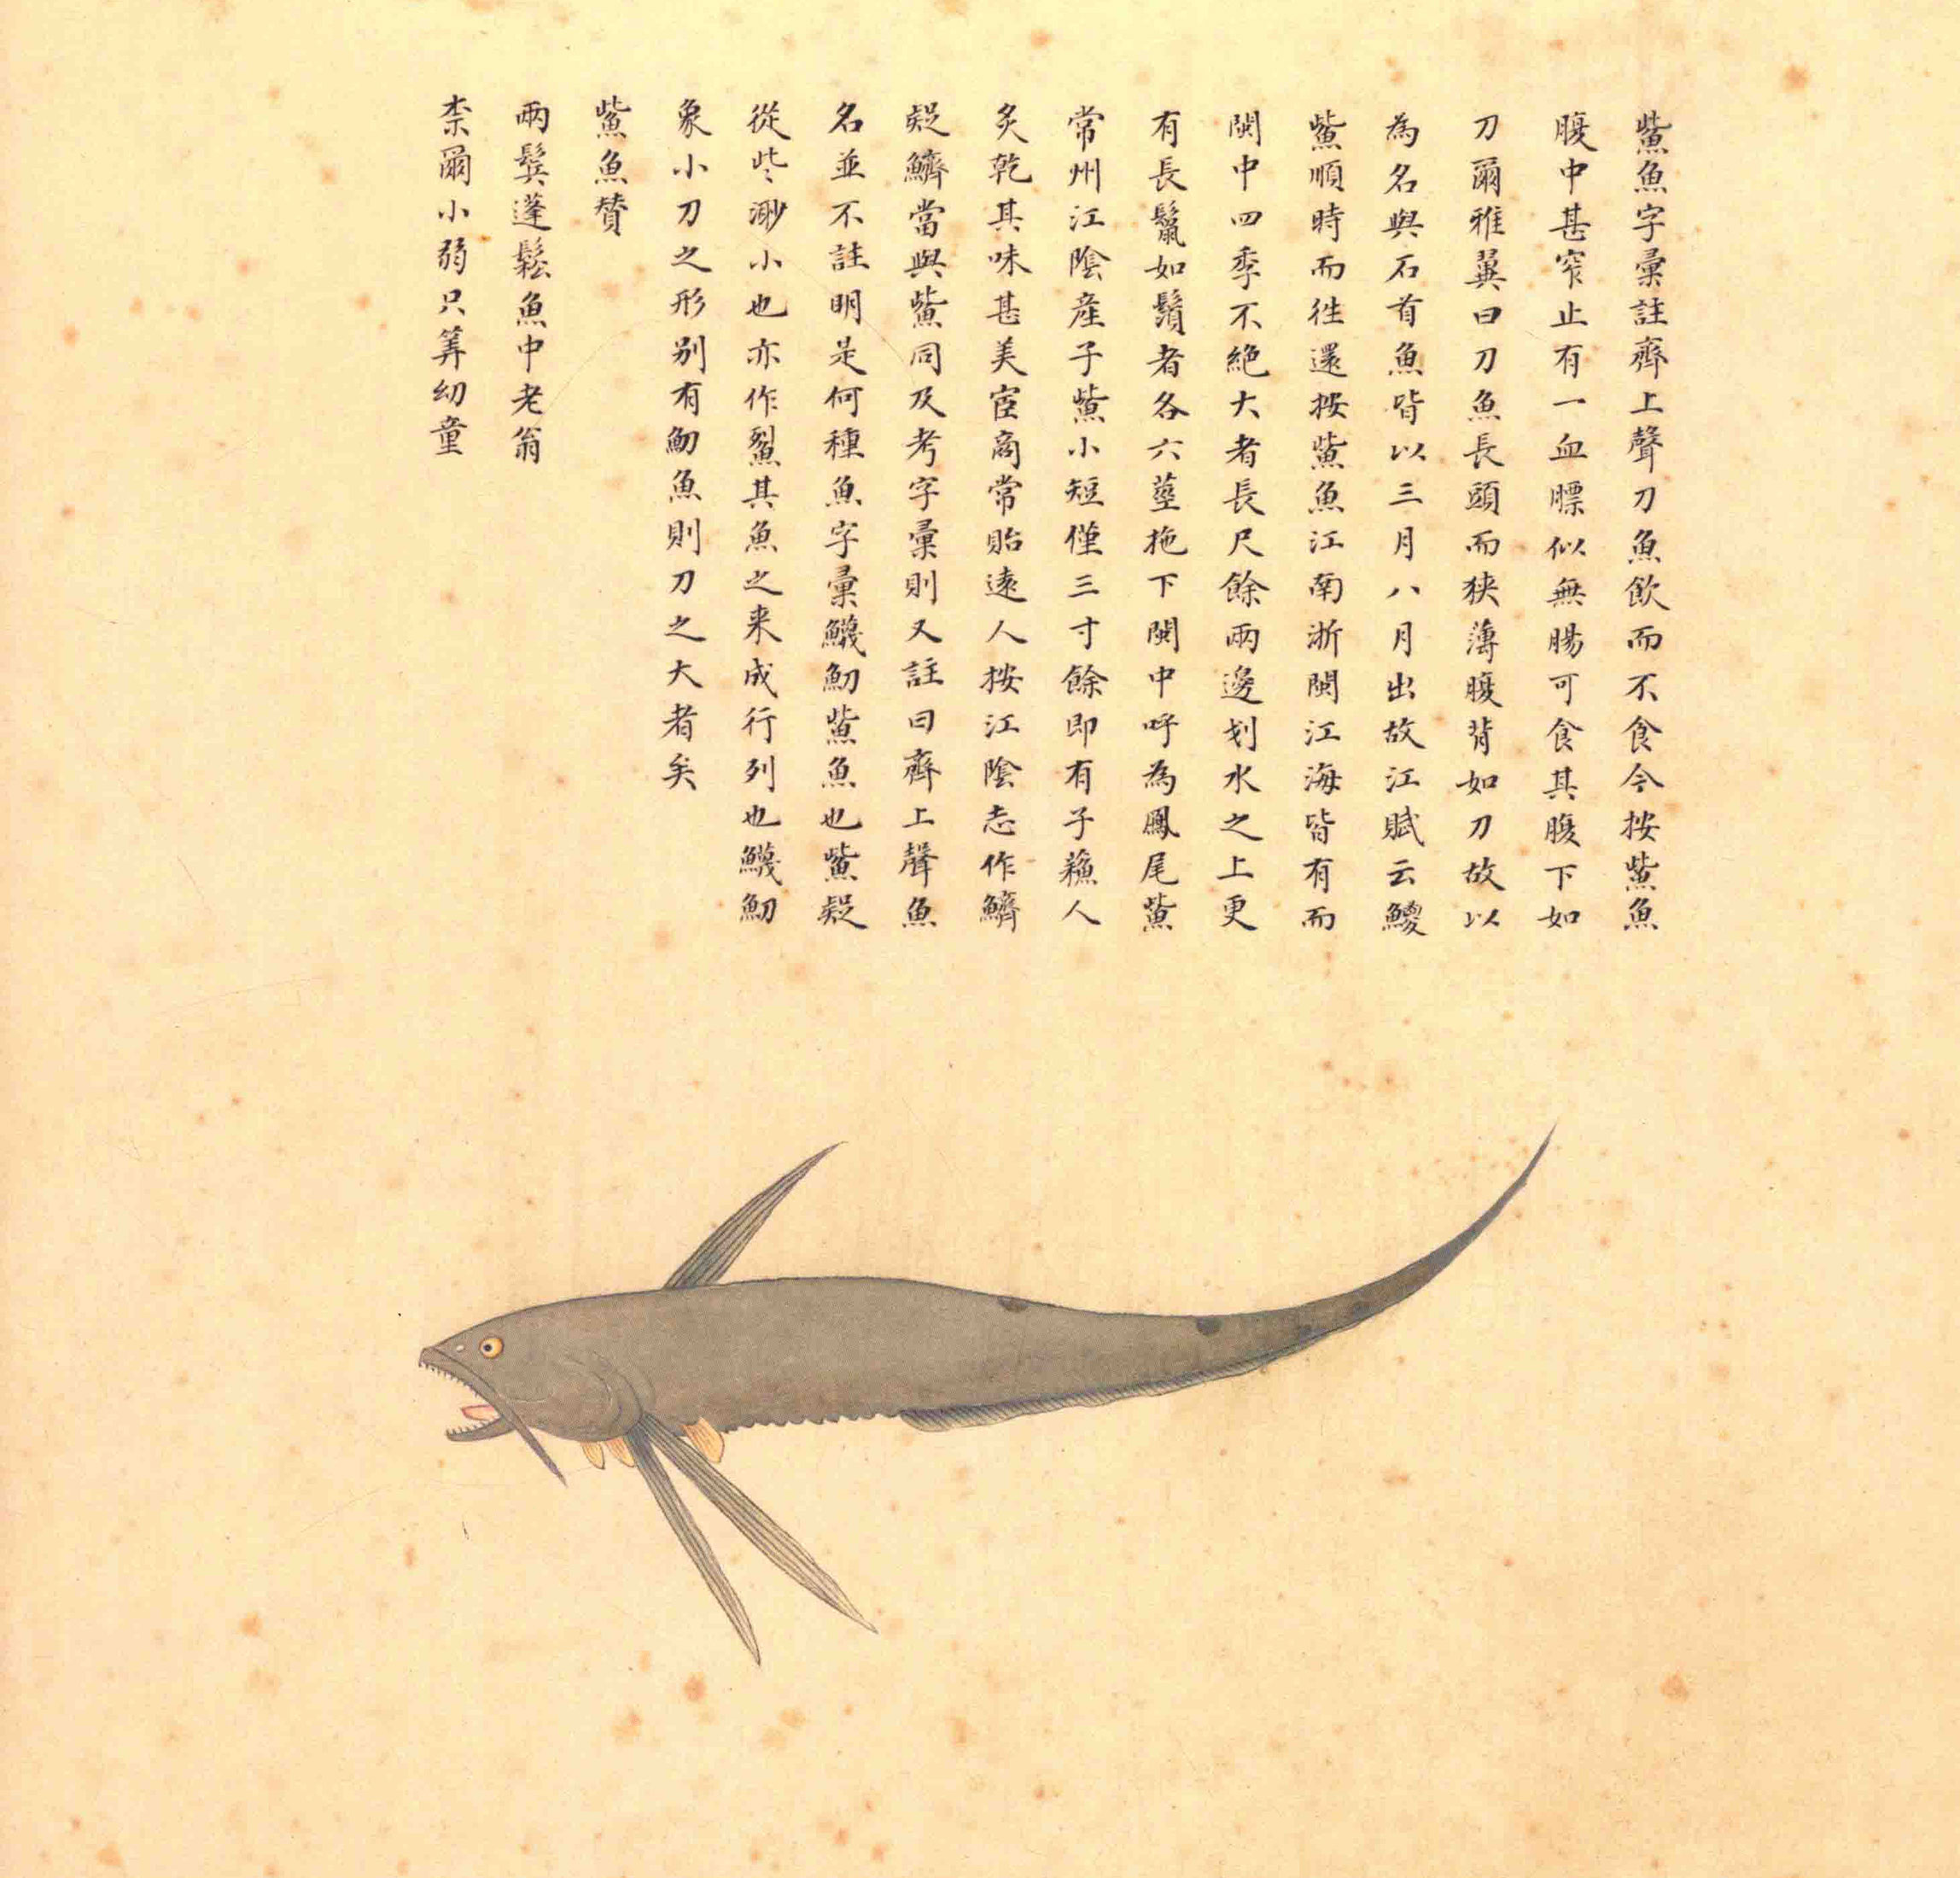 鮆魚字彙註齊上聲刀魚飲而不食今按鮆魚
腹中甚窄止有一血膘似無腸可食其腹下如
刀爾雅翼曰刀魚長頭而狹薄腹背如刀故以
為名與石首魚皆以三月八月出故江賦云鯼
鮆順時而徃還按鮆魚江南浙閩江海皆有而
閩中四季不絕大者長尺餘兩邊划水之上更
有長鬣如鬚者各六莖拖下閩中呼為鳳尾鮆
常州江陰產子鮆小短僅三寸餘即有子漁人
炙乾其味甚美宦商常貽遠人按江陰志作鱭
疑鱭當與鮆同及考字彙則又註曰齊上聲魚
名並不註明是何種魚字彙鱴魛鮆魚也鮆疑
從些些渺小也亦作鮤其魚之来成行列也鱴魛
象小刀之形别有魛魚則刀之大者矣
鮆魚贊
兩鬓蓬鬆魚中老翁
柰爾小弱只筭幼童